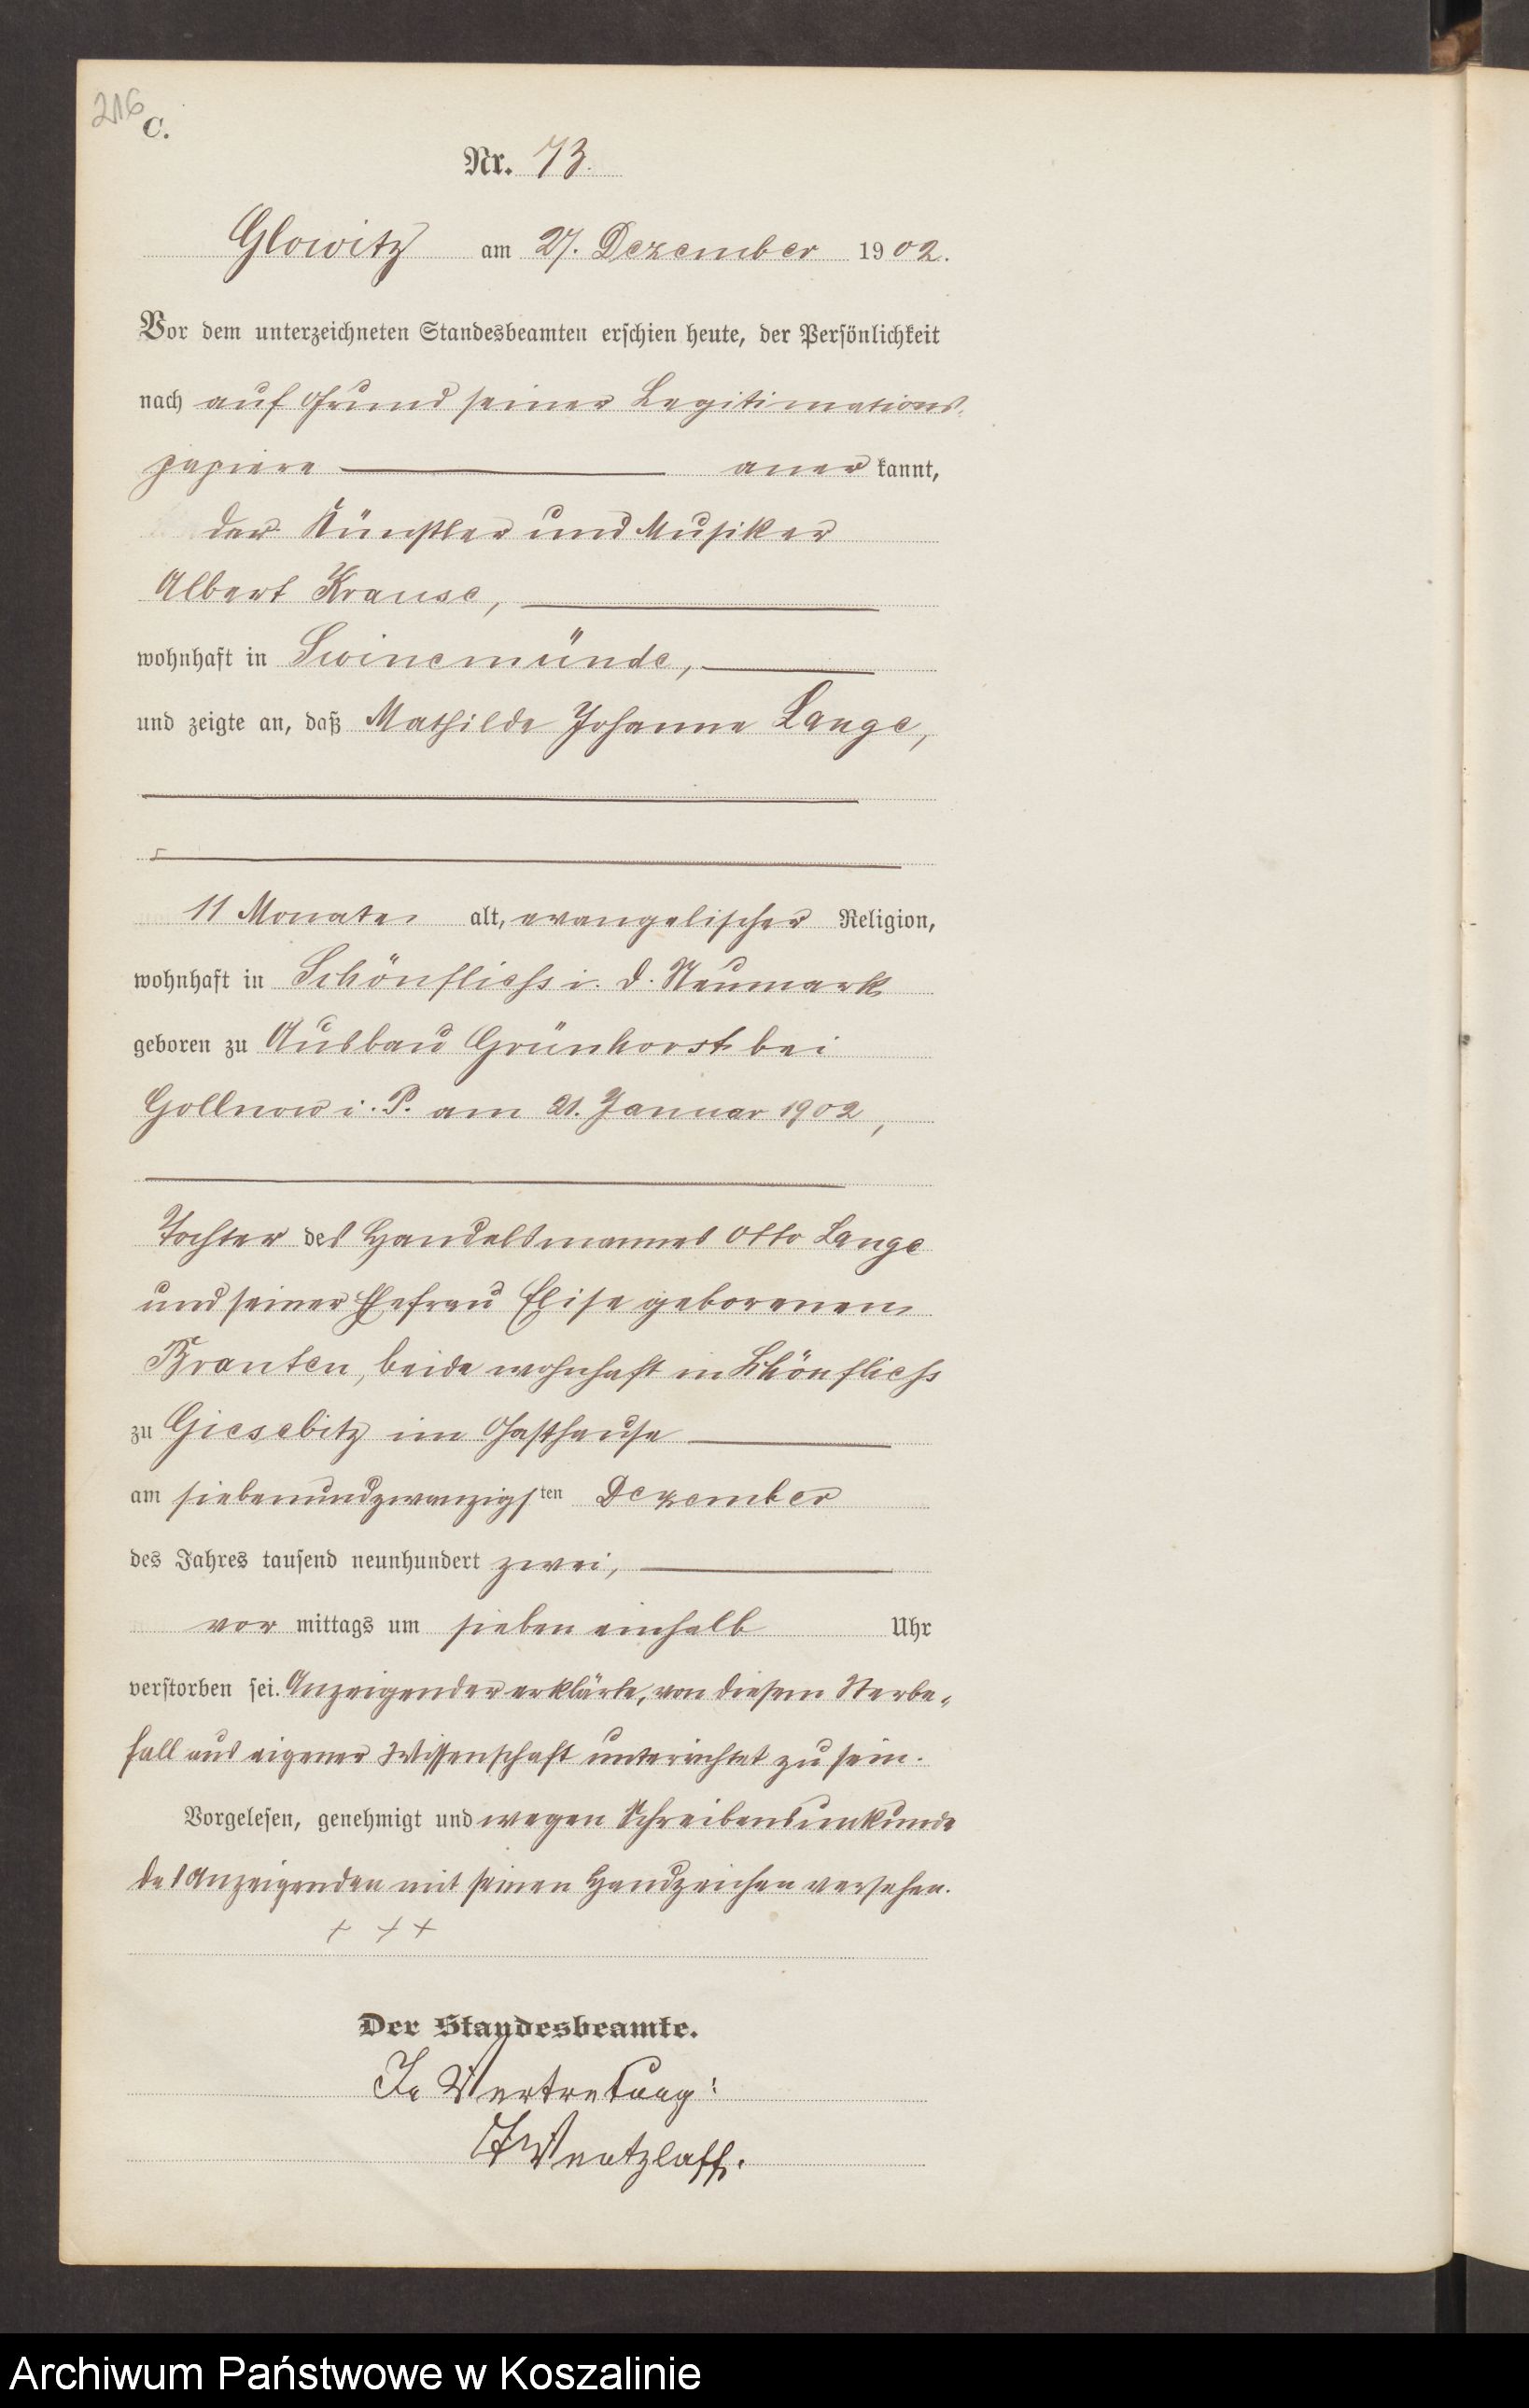 216
C.
Nr. 73.
Glowitz am 27. Dezember 1902.
Vor dem unterzeichneten Standesbeamten erschien heute, der Persönlichkeit
nach auf Grund seiner Legitimations-
papiere aner kannt,
der Künstler und Musiker
Albert Krause,
wohnhaft in Swinemünde,
und zeigte an, daß Mathilde Johanne Lange,
11 Monate alt, evangelischer Religion,
wohnhaft in Schönfliess i. d. Neumark
geboren zu Ausbau Grünhorst bei
Gollnow i. P. am 21. Januar 1902,
Tochter des Handelsmannes Otto Lange
und seiner Ehefrau Elise geborenen
Branten, beide wohnhaft in Schönfliess
zu Giesebitz im Gasthause
am siebenundzwanzigsten Dezember
des Jahres tausend neunhundert zwei,
vor mittags um sieben einhalb Uhr
verstorben sei. Anzeigender erklärte, von diesem Sterbe-
fall aus eigener Wissenschaft unterrichtet zu sein.
Vorgelesen, genehmigt und wegen Schreibensunkunde
des Anzeigenden mit seinen Handzeichen versehen.
+ + +
Der Standesbeamte.
In Vertretung:
Wentzlaff.
Archiwum Państwowe w Koszalinie